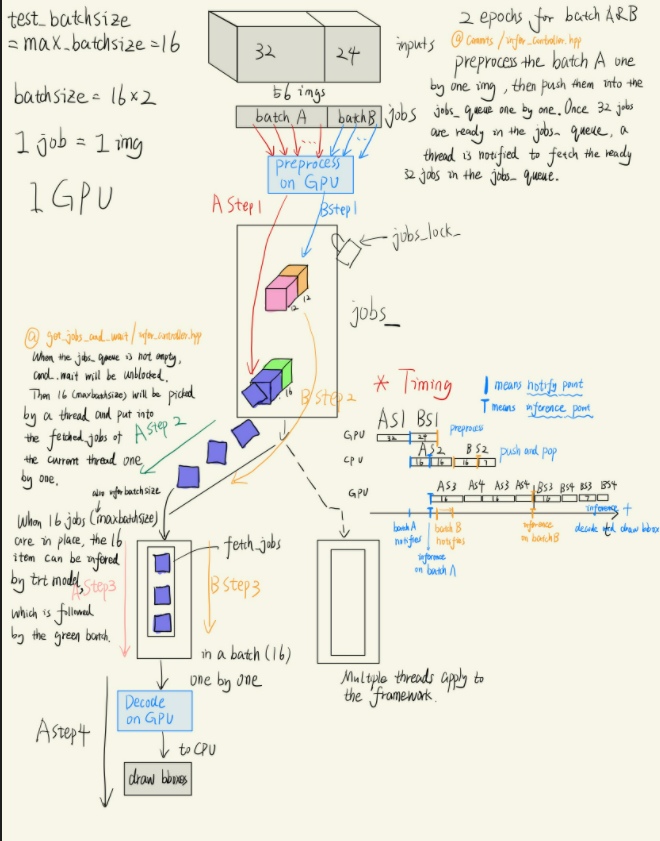 test_batchsize
= max_batchsize = 16
batchsize = 16×2
1 job = 1 img
1 GPU
32
24
inputs
56 imgs
batch A
batch B
jobs
preprocess
on GPU
A Step1
BStep1
jobs_lock_
12
12
jobs_
16
B Step2
2 epochs for batch A&B
@ Commits / infer_controller.hpp
preprocess the batch A one
by one img, then push them into the
jobs_ queue one by one. Once 32 jobs
are ready in the jobs_ queue, a
thread is notified to fetch the ready
32 jobs in the jobs_ queue.
@ get_jobs_and_wait / infer_controller.hpp
When the jobs_ queue is not empty,
cond_.wait will be unblocked.
Then 16 (maxbatchsize) will be picked
by a thread and put into
the fetched_jobs of
the current thread one
by one.
A Step 2
also infer batchsize
When 16 jobs (maxbatchsize)
are in place, the 16
item can be infered
by trt model,
which is followed
by the green batch.
A Step3
fetch_jobs
B Step3
in a batch (16)
one by one
Decode
on GPU
to CPU
draw bboxes
A Step4
Multiple threads apply to
the framework.
* Timing
means notify point
means inference point
AS1 BS1
GPU
32
24
preprocess
AS2
BS2
CPU
16
16
16
push and pop
GPU
AS3 AS4 AS3 AS4 BS3 BS4 BS3 BS4
16
16
16
batch A
notifies
batch B
notifies
inference
on batch A
inference
on batch B
inference +
decode and draw bbox